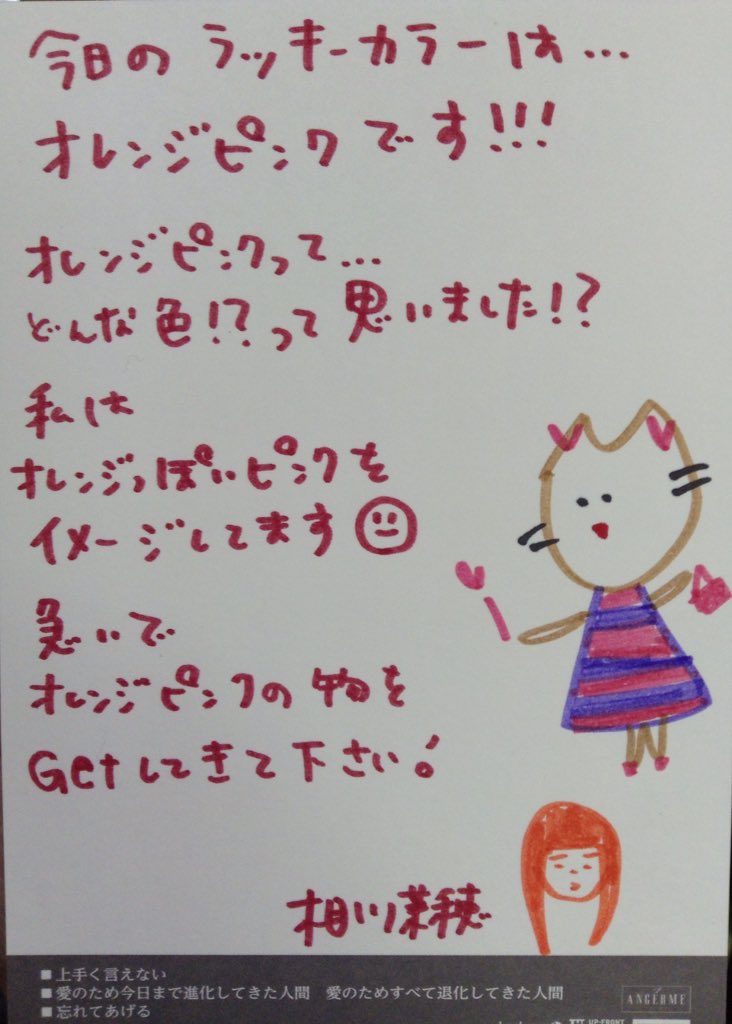 今日のラッキーカラーは...
オレンジピンクです!!!
オレンジピンクって...
どんな色!?って思いました!?
私は
オレンジっぽいピンクを
イメージしてます
急いで
オレンジピンクの物を
Getしてきて下さい!
相川茉穂
■上手く言えない
■愛のため今日まで進化してきた人間　愛のためすべて退化してきた人間
■忘れてあげる
ANGERME
UP-FRONT